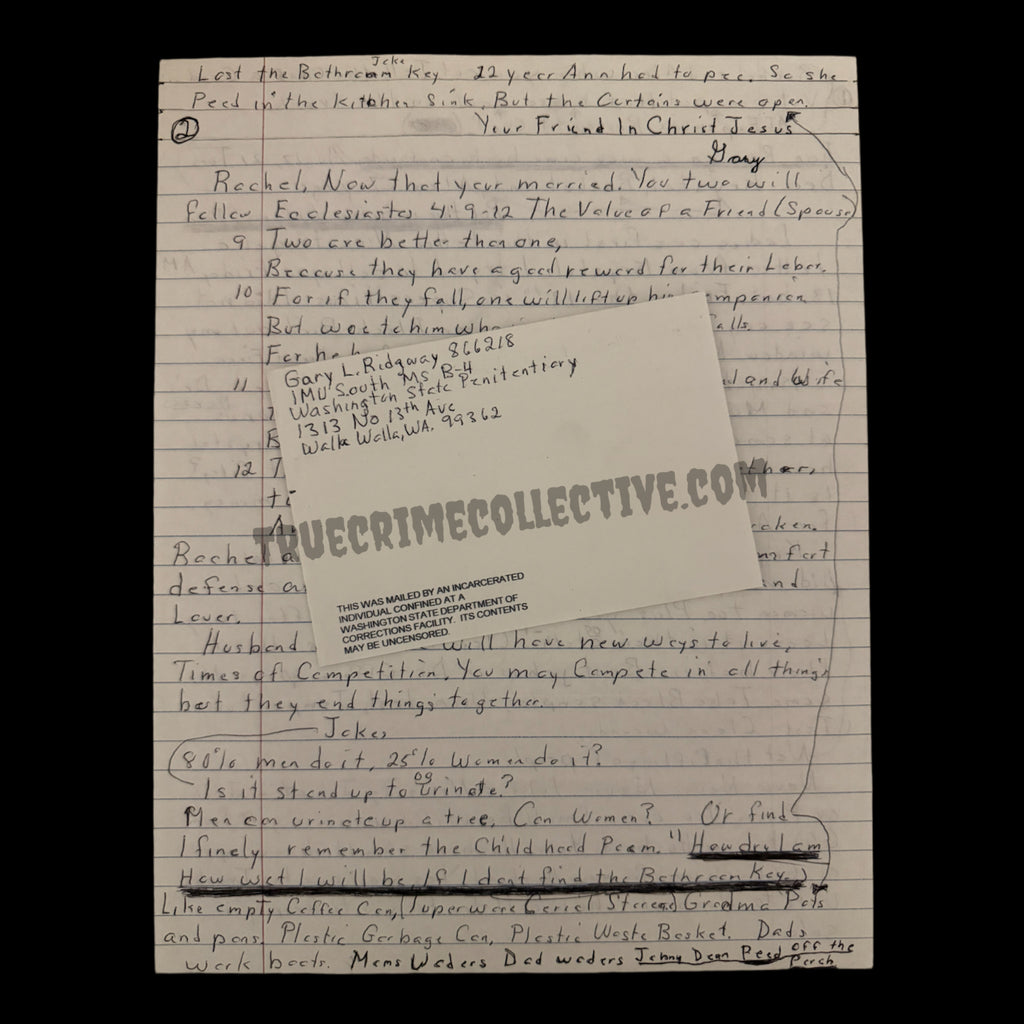 Joke
Lost the Bathroom Key 22 year Ann had to pee. So she
Peed in the kitchen Sink, But the Curtains were open.
② Your Friend In Christ Jesus
Gary
Rachel, Now that your married. You two will
follow Ecclesiastes 4:9-12 The Value of a Friend (Spouse)
9 Two are better than one,
Because they have a good reward for their Labor.
10 For if they fall, one will lift up his companion
But woe to him who alls.
For he h
11 d and Wife
B
12 T ther,
ti
A oken.
Rachel a fort
defense and
Lover.
Gary L. Ridgway 866218
IMU South MS B-4
Washington State Penitentiary
1313 No 13th Ave
Walla Walla, WA. 99362
TRUECRIMECOLLECTIVE.COM
THIS WAS MAILED BY AN INCARCERATED
INDIVIDUAL CONFINED AT A
WASHINGTON STATE DEPARTMENT OF
CORRECTIONS FACILITY. ITS CONTENTS
MAY BE UNCENSORED.
Husband will have new ways to live,
Times of Competition, You may Compete in all things
but they end things together.
Jokes
80% men do it, 25% Women do it?
Is it stand up to urinate?
Men can urinate up a tree, Can Women? Or find
I finely remember the Child hood Poem. "How dry I am
How wet I will be, If I dont find the Bathroom Key.)
Like empty Coffee Can, Tuperware Cereal Storeag Grodma Pots
and pans, Plastic Garbage Can, Plastic Waste Basket, Dads
work boots. Moms Waders Dad waders Johny Dean Peed off the
Porch